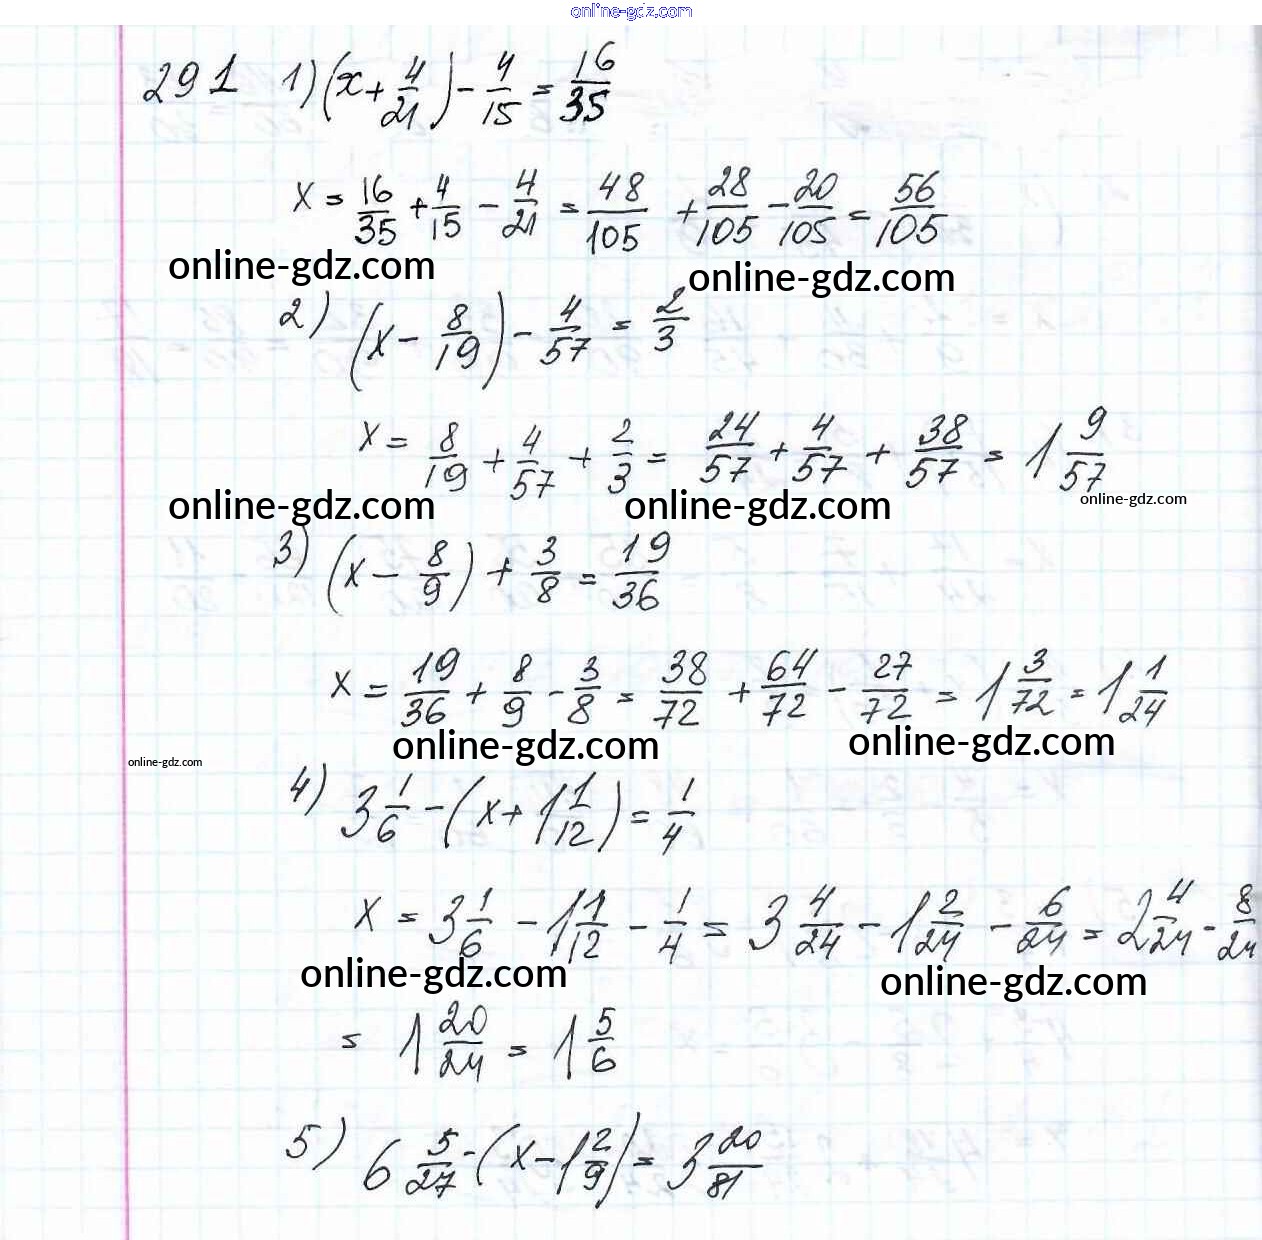 online-gdz.com
291 1) (x + 4/21) - 4/15 = 16/35
x = 16/35 + 4/15 - 4/21 = 48/105 + 28/105 - 20/105 = 56/105
online-gdz.com online-gdz.com
2) (x - 8/19) - 4/57 = 2/3
x = 8/19 + 4/57 + 2/3 = 24/57 + 4/57 + 38/57 = 1 9/57
online-gdz.com online-gdz.com online-gdz.com
3) (x - 8/9) + 3/8 = 19/36
x = 19/36 + 8/9 - 3/8 = 38/72 + 64/72 - 27/72 = 1 3/72 = 1 1/24
online-gdz.com online-gdz.com
online-gdz.com
4) 3 1/6 - (x + 1 1/12) = 1/4
x = 3 1/6 - 1 1/12 - 1/4 = 3 4/24 - 1 2/24 - 6/24 = 2 4/24 - 8/24
online-gdz.com online-gdz.com
= 1 20/24 = 1 5/6
5) 6 5/27 - (x - 1 2/9) = 3 20/81